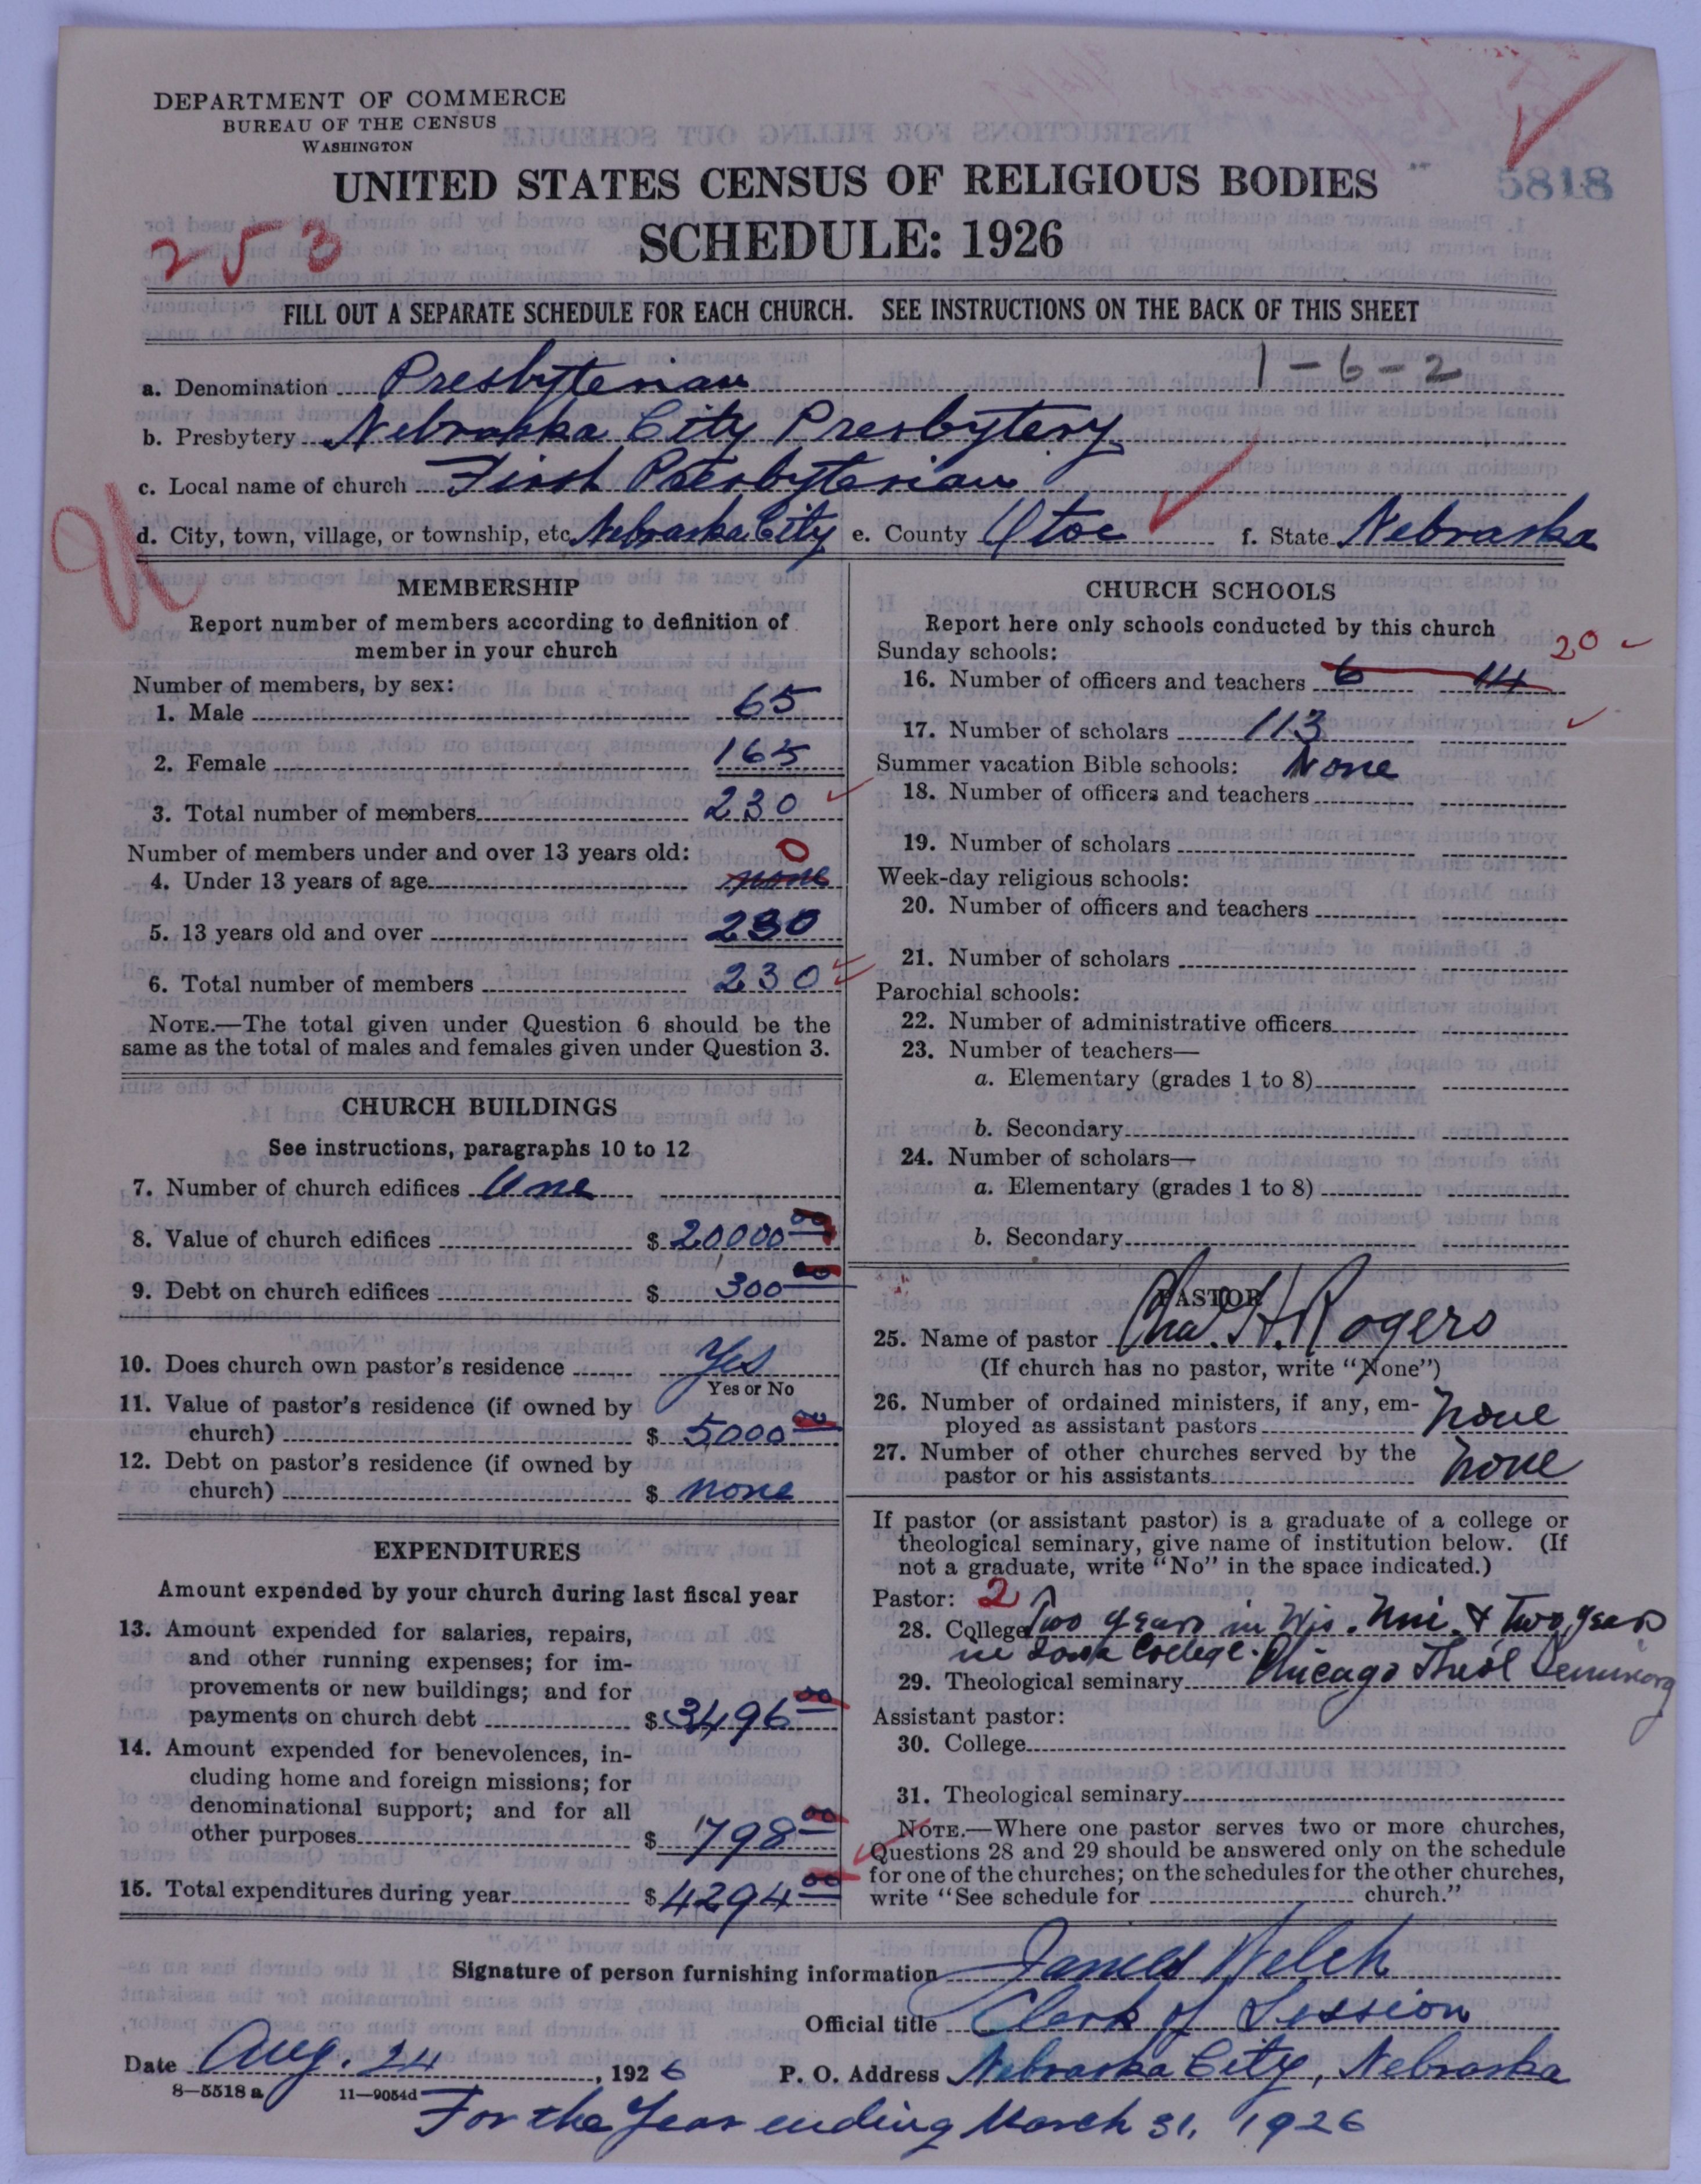 DEPARTMENT OF COMMERCE
BUREAU OF THE CENSUS
WASHINGTON
UNITED STATES CENSUS OF RELIGIOUS BODIES
5818
SCHEDULE: 1926
253
FILL OUT A SEPARATE SCHEDULE FOR EACH CHURCH. SEE INSTRUCTIONS ON THE BACK OF THIS SHEET
1-6-2
a. Denomination Presbyterian
b. Presbytery Nebraska City Presbytery
c. Local name of church First Presbyterian
d. City, town, village, or township, etc. Nebraska City e. County Otoe f. State Nebraska
MEMBERSHIP
Report number of members according to definition of
member in your church
Number of members, by sex:
1. Male 65
2. Female 165
3. Total number of members 230
Number of members under and over 13 years old: 0
4. Under 13 years of age none
5. 13 years old and over 230
6. Total number of members 230
NOTE.—The total given under Question 6 should be the
same as the total of males and females given under Question 3.
CHURCH BUILDINGS
See instructions, paragraphs 10 to 12
7. Number of church edifices One
8. Value of church edifices $ 20000 00
9. Debt on church edifices $ 300 00
10. Does church own pastor's residence Yes
Yes or No
11. Value of pastor's residence (if owned by
church) $ 5000 00
12. Debt on pastor's residence (if owned by
church) $ none
EXPENDITURES
Amount expended by your church during last fiscal year
13. Amount expended for salaries, repairs,
and other running expenses; for im-
provements or new buildings; and for
payments on church debt $ 3496 00
14. Amount expended for benevolences, in-
cluding home and foreign missions; for
denominational support; and for all
other purposes $ 798 00
15. Total expenditures during year $ 4294 00
CHURCH SCHOOLS
Report here only schools conducted by this church
Sunday schools: 20
16. Number of officers and teachers 6 14
17. Number of scholars 113
Summer vacation Bible schools: None
18. Number of officers and teachers
19. Number of scholars
Week-day religious schools:
20. Number of officers and teachers
21. Number of scholars
Parochial schools:
22. Number of administrative officers
23. Number of teachers—
a. Elementary (grades 1 to 8)
b. Secondary
24. Number of scholars—
a. Elementary (grades 1 to 8)
b. Secondary
PASTOR
25. Name of pastor Cha. H. Rogers
(If church has no pastor, write "None")
26. Number of ordained ministers, if any, em-
ployed as assistant pastors none
27. Number of other churches served by the
pastor or his assistants none
If pastor (or assistant pastor) is a graduate of a college or
theological seminary, give name of institution below. (If
not a graduate, write "No" in the space indicated.)
Pastor: 2
28. College Two years in Wis. Uni. & Two years
in College.
29. Theological seminary Chicago Theol Seminary
Assistant pastor:
30. College
31. Theological seminary
NOTE.—Where one pastor serves two or more churches,
Questions 28 and 29 should be answered only on the schedule
for one of the churches; on the schedules for the other churches,
write "See schedule for church."
Signature of person furnishing information James Welch
Official title Clerk of Session
Date Aug. 24, 1926 P. O. Address Nebraska City, Nebraska
8—5518 a 11—9054d
For the Year ending March 31, 1926